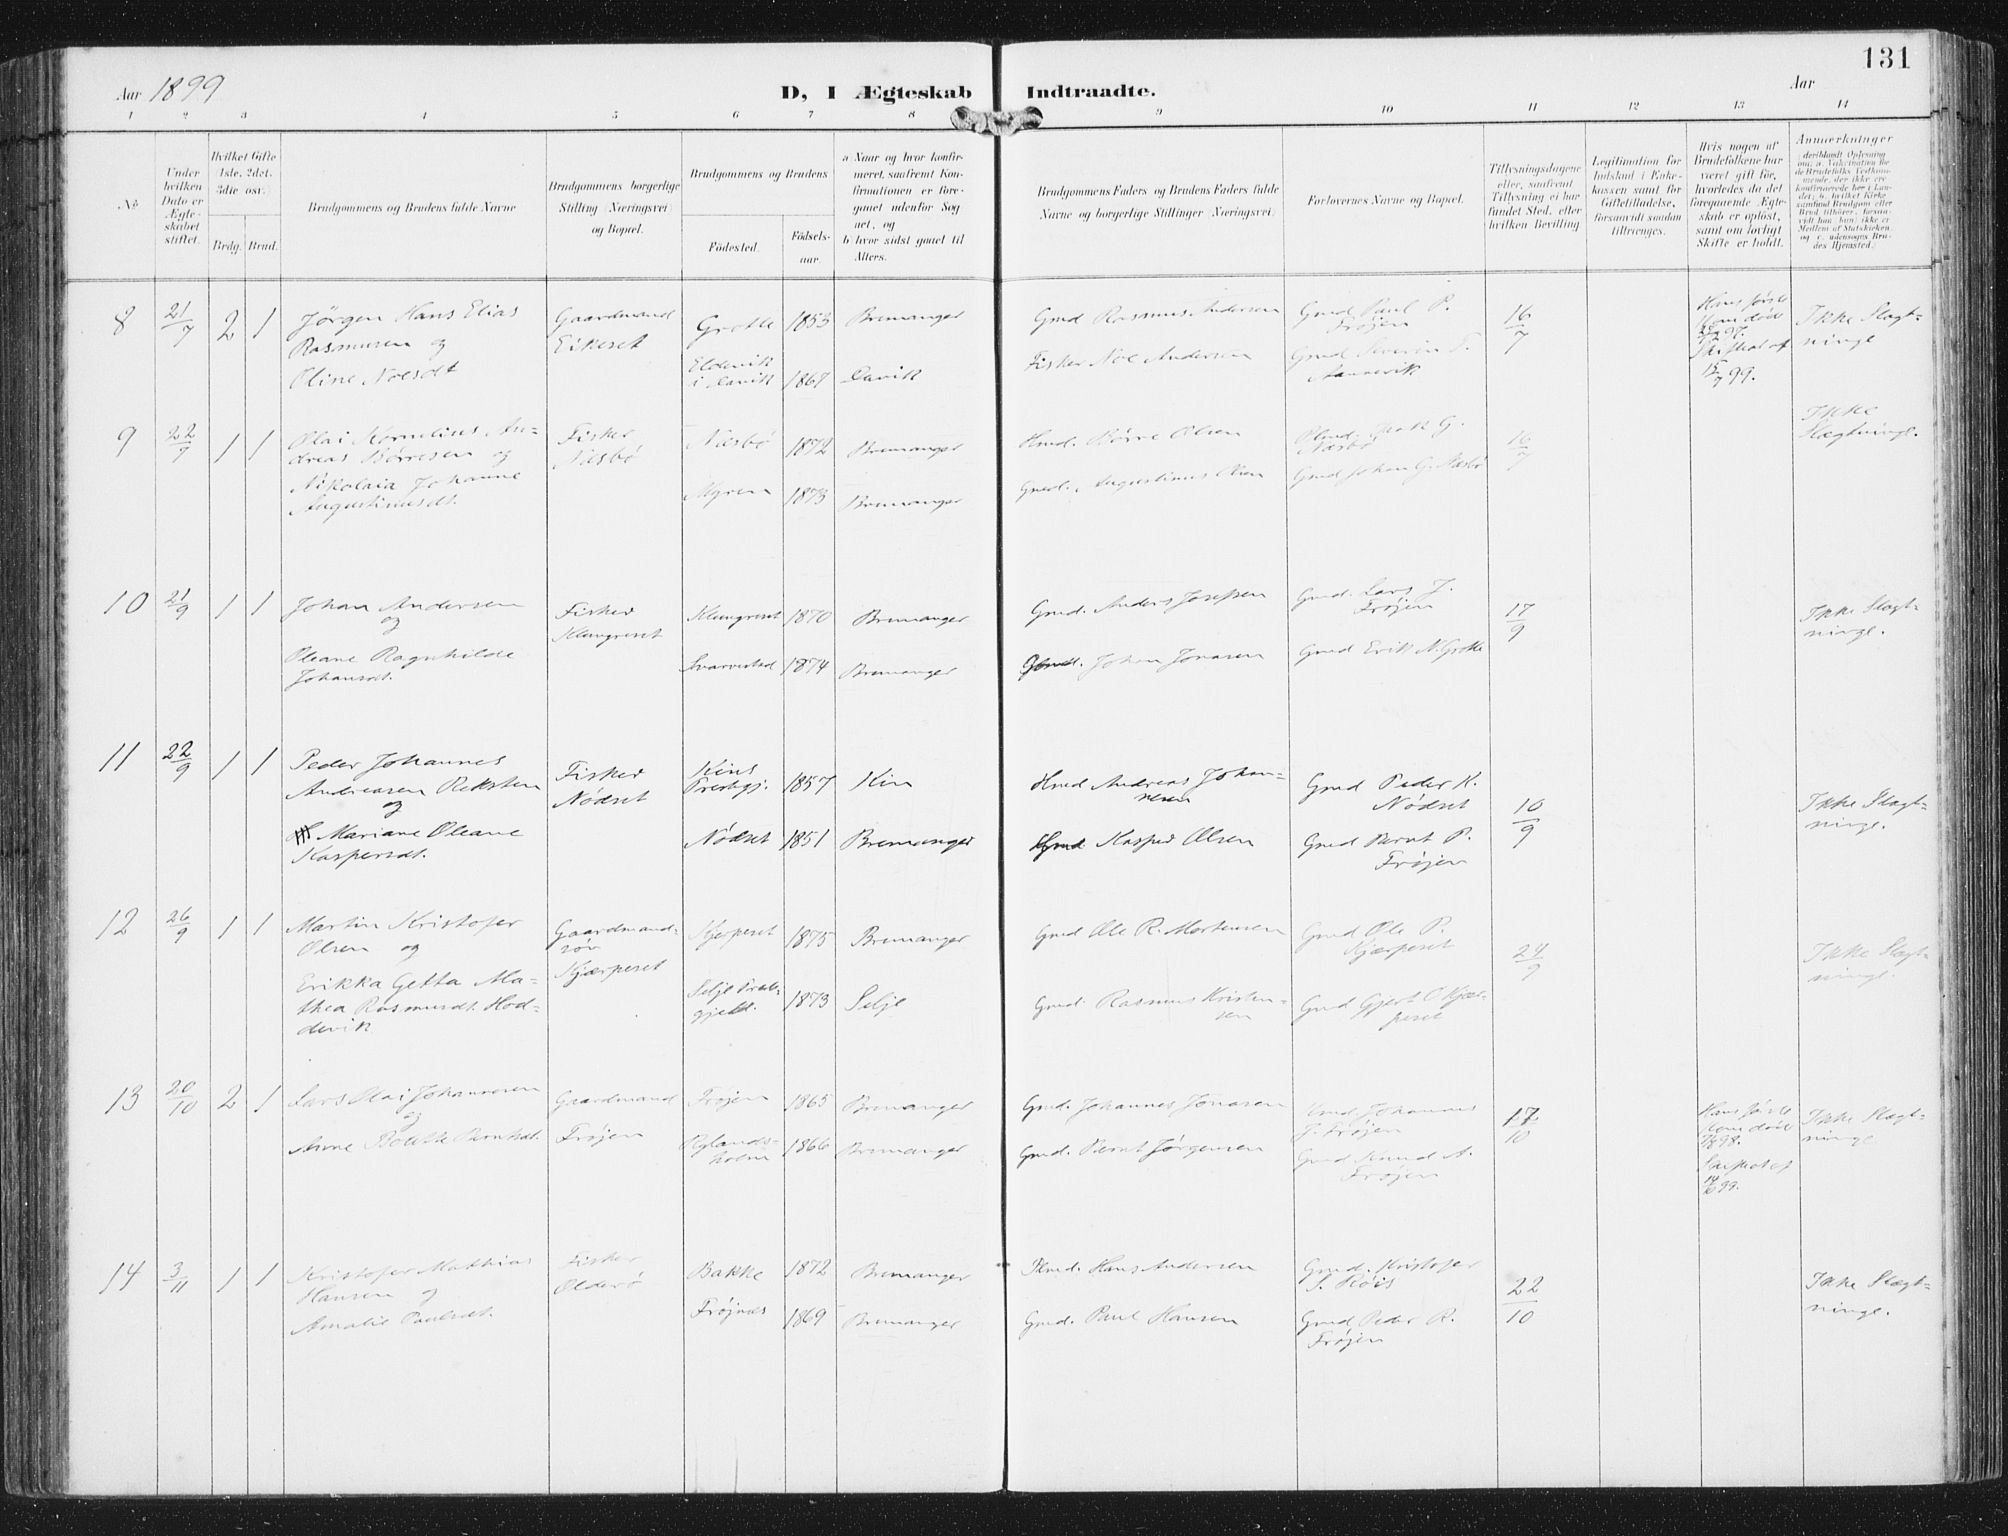 131
Aar 1899
D, I Ægteskab Indtraadte.
Aar
1 2 3 4 5 6 7 8 9 10 11 12 13 14
No.
Under hvilken Dato er Ægteskabet stiftet.
Hvilket Gifte 1ste, 2det, 3die osv.
Brdg. Brud.
Brudgommens og Brudens fulde Navne
Brudgommens borgerlige Stilling (Næringsvei) og Bopæl.
Brudgommens og Brudens
Födested.
Födselsaar.
a Naar og hvor konfirmeret, saafremt Konfirmationen er foregaaet udenfor Sognet, og
b hvor sidst gaaet til Alters.
Brudgommens Faders og Brudens Faders fulde Navne og borgerlige Stillinger (Næringsvei)
Forlovernes Navne og Bopæl.
Tillysningsdagene eller, saafremt Tillysning ei har fundet Sted, efter hvilken Bevilling
Legitimation for Indskud i Enkekassen samt for Giftetilladelse, forsaavidt saadan tiltrænges.
Hvis nogen af Brudefolkene har været gift før, hvorledes da det foregaaende Ægteskab er opløst, samt om lovligt Skifte er holdt.
Anmærkninger
8 21/7 2 1 Jörgen Hans Elias Rasmusen og
Gaardmand Eikeset
Grotle 1853 Bremanger
Gmd Rasmus Andersen
Gmd Paul P. Frøjen
16/7
Hans første Kone död
Skifte
15/7 99.
Ikke Slægtninge
Oline Noesdt
Eldevik i Davik 1867 Davik
Fisker Noe Andersen
Gmd Severin T.
9 22/7 1 1 Olai Kornelius Andreas Börresen og
Fisker Næsbö
Næsbö 1872 Bremanger
Börre Olsen
G. Næsbö
16/7
Ikke Slægtninge.
Nikolaia Johanne Augustinusdt.
Myren 1873 Bremanger
Gmd. Augustinus Olsen
Gmd Johan G. Næsbö
10 21/9 1 1 Johan Andersen og
Fisker Klungreset
Klungreset 1870 Bremanger
Gmd. Anders Josefsen
Gmd. Lars J. Frøjen
17/9
Ikke Slægtninge.
Oleane Ragnhilde Johansdt.
Svarvestad 1874 Bremanger
Johan Jonasen
Gmd Erik N. Grotle
11 22/9 1 1 Peder Johannes Andreasen Reksten og
Fisker Nödset
Kins Prestgj. 1857 Kin
Hmd Andreas Johannesen
Gmd Peder K. Nödset
10/9
Ikke Slægtninge.
Mariane Oleane Kaspersdt.
Nödset 1851 Bremanger
Gmd Kasper Olsen
Gmd Bernt P. Frøjen
12 26/9 1 1 Martin Kristofer Olsen og
Gaardmandssön Kjærpeset
Kjerpeset 1875 Bremanger
Gmd Ole R. Mortensen
Gmd Ole P. Kjærpeset
24/9
Ikke Slægtninge.
Erikka Getta Mathea Rasmusdt. Hoddevik
Selje Prestegjeld. 1873 Selje
Gmd. Rasmus Kristensen
Gmd Gjert O Kjærpeset
13 20/10 2 1 Lars Olai Johannesen og
Gaardmand Frøjen
Frøjen 1865 Bremanger
Gmd. Johannes Jonasen
Johannes J. Frøjen
17/10
Hans første Kone död 98.
99.
Ikke Slægtninge
Anne Bolette Berntsdt.
Rylandsholm 1866 Bremanger
Gmd. Bernt Jörgensen
Gmd Knud A. Frøjen
14 3/11 1 1 Kristofer Mathias Hansen og
Fisker Olderö
Bakke 1872 Bremanger
Hans Andersen
Gmd. Kristofer S. Röis
22/10
Ikke Slægtninge.
Amalie Paulsdt.
Frøjnæs 1869 Bremanger
Gmd. Paul Hansen
Gmd Peder R. Frøjen